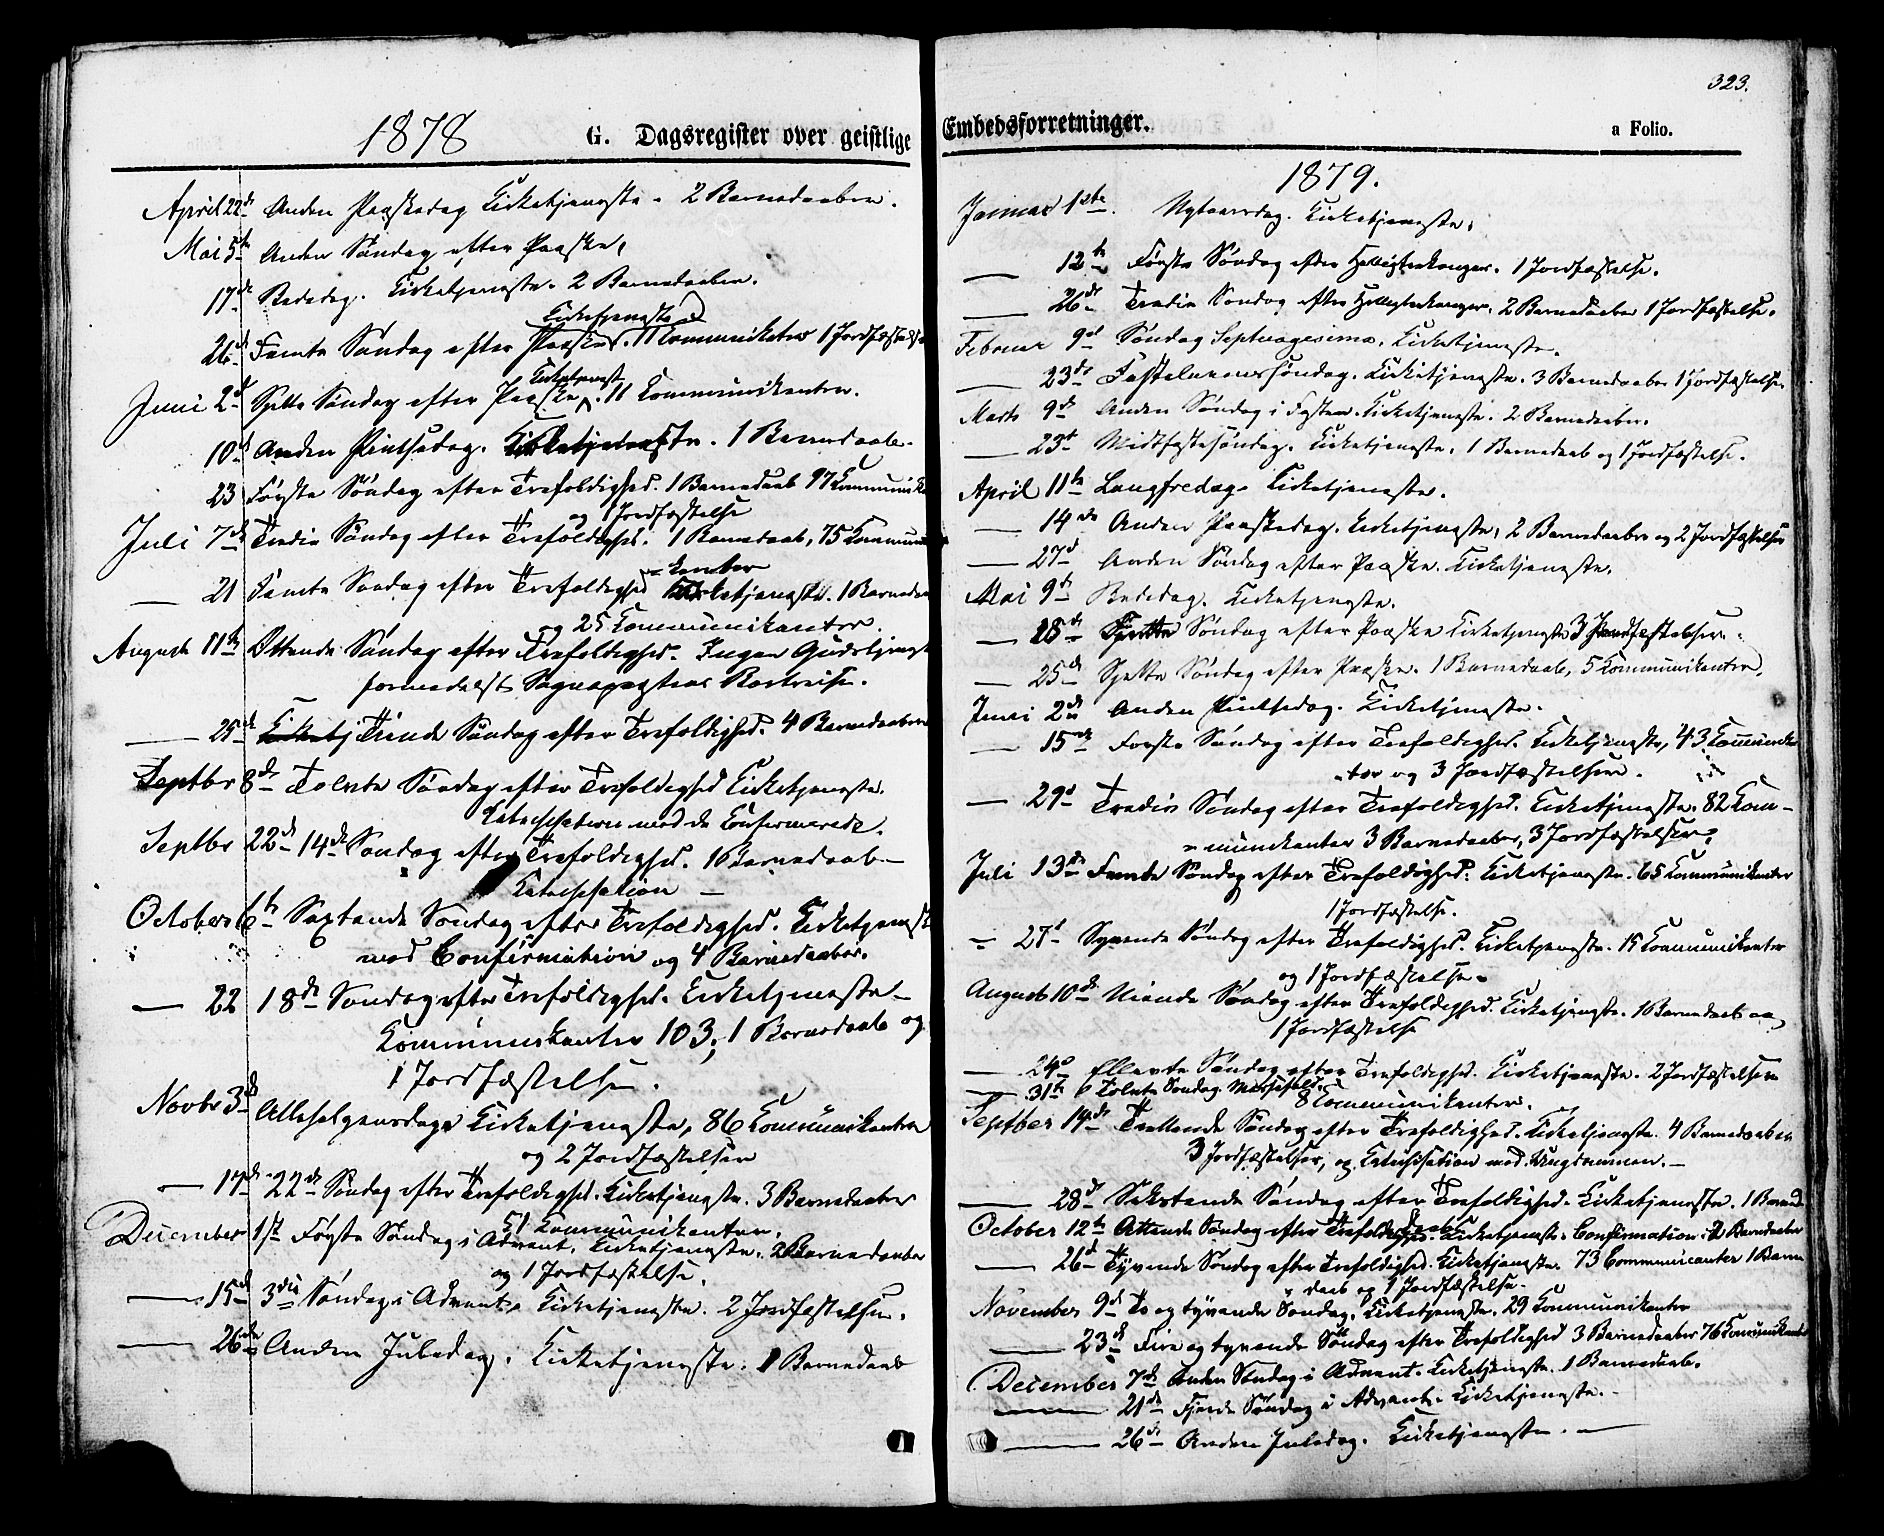 1878
G. Dagsregister over geistlige
April 22de Anden Paaskedag Kirketjeneste. 2 Barnedaaber.
Mai 5te Anden Søndag efter Paaske,
17de Bededag. Kirketjeneste. 2 Barnedaaber.
Kirketjeneste
26de Femte Søndag efter Paaske. 11 Communikanter 1 Jordfæstelse
Kirketjenest
Juni 2d Sjette Søndag efter Paaske. 11 Kommunikanter.
10de Anden Pintsedag. Kirketjeneste. 1 Barnedaab.
23 Første Søndag efter Trefoldighed. 1 Barnedaab 97 Kommunik
og 1 Jordfæstelse
Juli 7de Tredie Søndag efter Trefoldighed. 1 Barnedaab, 75 Kommun
21 Femte Søndag efter Trefoldighed Kirketjeneste. 1 Barneda
og 25 Kommunikanter.
August 11te Ottende Søndag efter Trefoldighed. Ingen Gudstjenest
formedelst Sognepræstens Bortreise.
25de Tiende Søndag efter Trefoldighed. 4 Barnedaaber
Septbr 8de Tolvte Søndag efter Trefoldighed Kirketjeneste.
Katechisation med de Confirmerede.
Septbr 22de 14de Søndag efter Trefoldighed. 1 Barnedaab
Katechisation
October 6te Sextende Søndag efter Trefoldighed. Kirketjenest
med Confirmation og 4 Barnedaaber.
22 18de Søndag efter Trefoldighed. Kirketjeneste
Kommunikanter 103, 1 Barnedaab og
1 Jordfæstelse.
Novbr 3de Allehelgensdag Kirketjeneste, 86 Kommunikanter
og 2 Jordfæstelser
17de 22de Søndag efter Trefoldighed. Kirketjeneste. 3 Barnedaaber
51 Kommunikanter.
December 1ste Første Søndag i Advent. Kirketjeneste. 2 Barnedaaber
og 1 Jordfæstelse.
15de 3die Søndag i Advent. Kirketjeneste. 2 Jordfæstelser.
26de Anden Juledag. Kirketjeneste. 1 Barnedaab
323.
Embedsforretninger.
a Folio.
1879.
Januar 1ste. Nytaarsdag. Kirketjeneste.
12te Første Søndag efter Helligtrekonger. 1 Jordfæstelse.
26de Tredie Søndag efter Helligtrekonger. 2 Barnedaaber 1 Jordfæstelse.
Februar 9de Søndag Septuagesima. Kirketjeneste.
23de Fastelavenssøndag. Kirketjeneste. 3 Barnedaaber 1 Jordfæstelse
Marts 9de Anden Søndag i Fasten. Kirketjeneste. 2 Barnedaaber.
23de Midtfastesøndag. Kirketjeneste. 1 Barnedaab og 1 Jordfæstelse.
April 11te Langfredag. Kirketjeneste.
14de Anden Paaskedag. Kirketjeneste, 2 Barnedaaber og 2 Jordfæstelser
27d Anden Søndag efter Paaske. Kirketjeneste.
Mai 9de Bededag. Kirketjeneste.
18de Søndag efter Paaske Kirketjeneste 3 Jordfæstelser.
25de Sjette Søndag efter Paaske. 1 Barnedaab, 5 Kommunikanter.
Juni 2de Anden Pintsedag. Kirketjeneste.
15de Første Søndag efter Trefoldighed. Kirketjeneste, 43 Kommunikan
ter og 3 Jordfæstelser.
29d Tredie Søndag efter Trefoldighed. Kirketjeneste. 82 Kom-
munikanter 3 Barnedaaber, 3 Jordfæstelser.
Juli 13de Femte Søndag efter Trefoldighed. Kirketjeneste. 65 Kommunikanter
1 Jordfæstelse.
27d Syvende Søndag efter Trefoldighed. Kirketjeneste. 15 Kommunikanter
og 1 Jordfæstelse.
August 10de Niende Søndag efter Trefoldighed. Kirketjeneste. 1 Barnedaab og
1 Jordfæstelse
24de Ellevte Søndag efter Trefoldighed. Kirketjeneste. 2 Jordfæstelser
31te Tolvte Søndag
8 Kommunikanter.
September 14de Trettende Søndag efter Trefoldighed. Kirketjeneste. 4 Barnedaaber
3 Jordfæstelser, og Katechisation med Ungdommen.
28de Sekstende Søndag efter Trefoldighed. Kirketjeneste. 1 Barned
October 12te Attende Søndag efter Trefoldighed. Kirketjeneste. Confirmation. 2 Barnedaaber
26de Tyvende Søndag efter Trefoldighed. Kirketjeneste. 73 Communicanter 1 Barne
daab og 1 Jordfæstelse.
November 9de To og tyvende Søndag. Kirketjeneste. 29 Kommunikanter
23de Fire og tyvende Søndag efter Trefoldighed 3 Barnedaaber 76 Kommunikanter
December 7de Anden Søndag i Advent. Kirketjeneste. 1 Barnedaab.
21de Fjerde Søndag i Advent. Kirketjeneste.
26de Anden Juledag. Kirketjeneste.